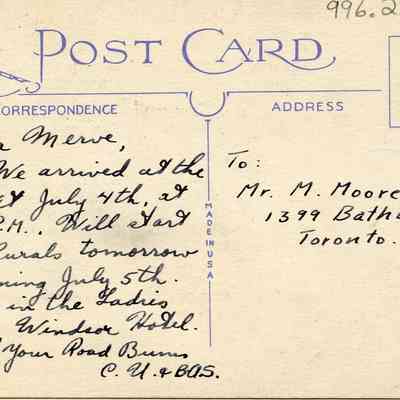 996.2
POST CARD
CORRESPONDENCE
ADDRESS
Merve,
We arrived at the
July 4th, at
P.M.. Will start
Rurals tomorrow
July 5th.
in the Ladies
Windsor Hotel.
Your Road Bums
C. U. & BAS.
MADE IN USA
To:
Mr. M. Moore
1399 Bathu
Toronto.